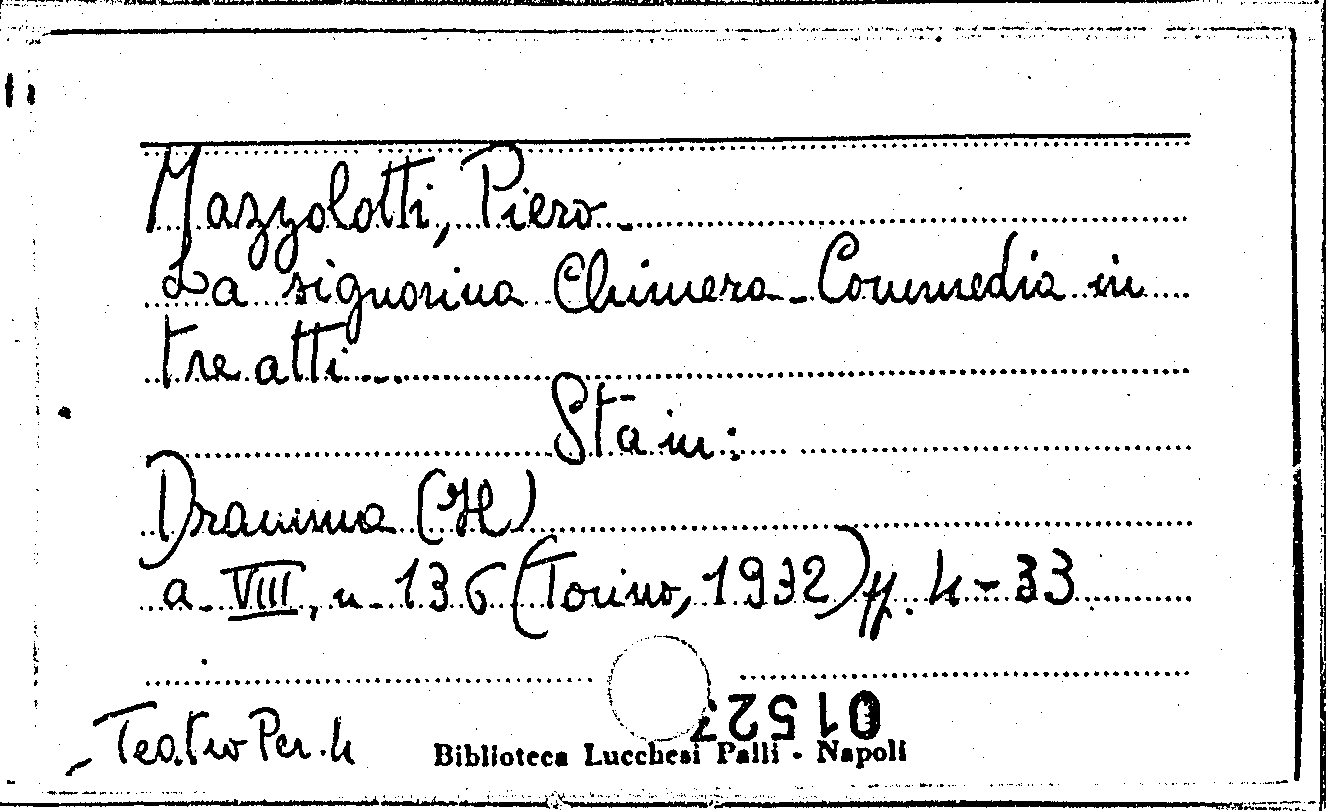 Mazzolotti, Piero.
La signorina Chimera - Commedia in
tre atti.
Sta in:
Dramma (Il)
a. VIII, n. 136 (Torino, 1932) pp. 4-33
Teatro Per. 4
Biblioteca Lucchesi Palli - Napoli